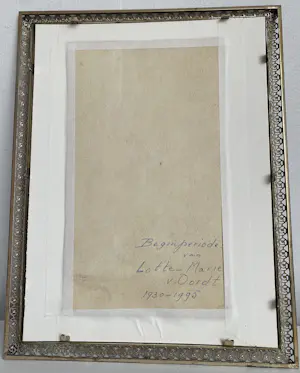 Beginperiode
van
Lotte-Marie
v. Oordt
1930-1995